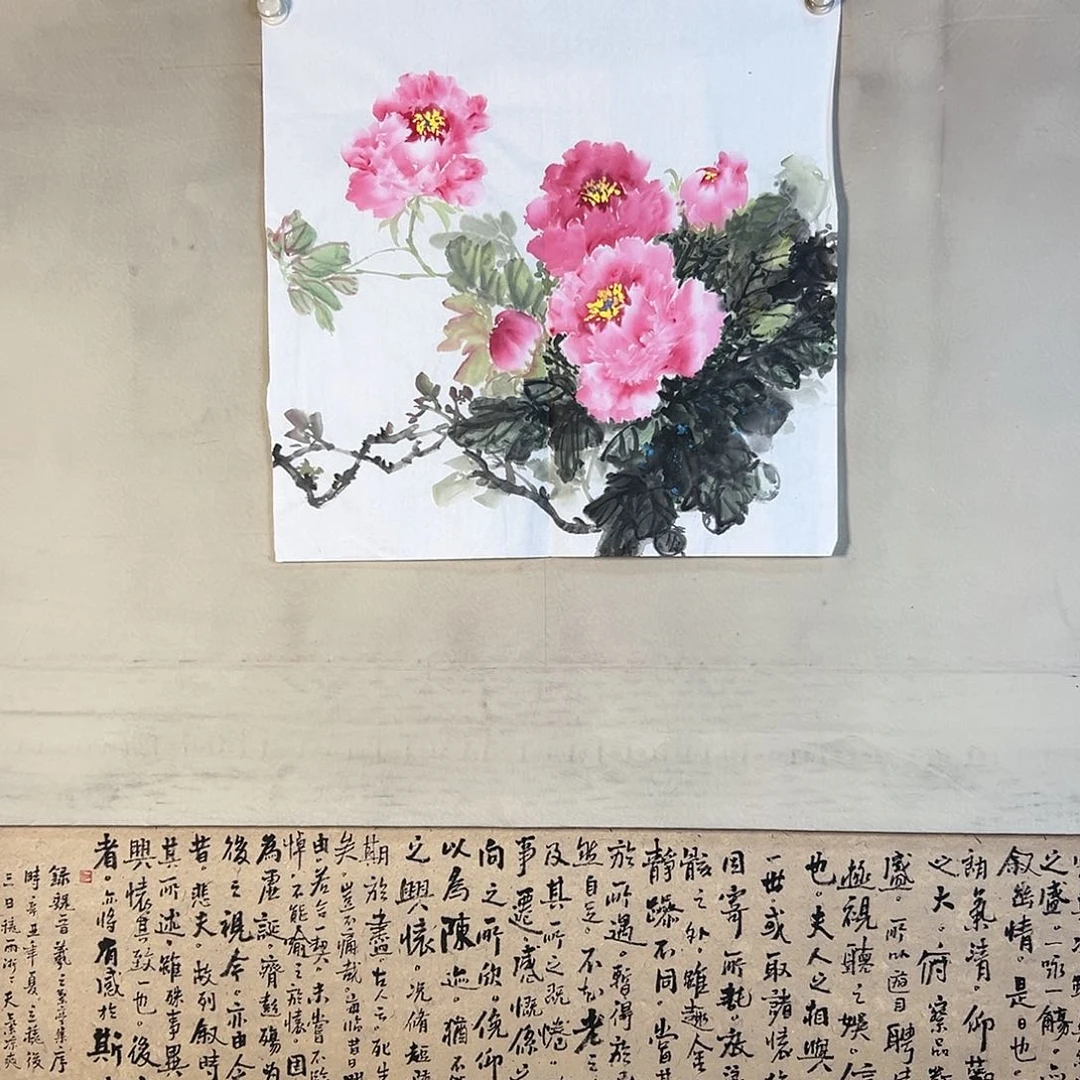 之盛。一咏一觴。
叙幽情。是日也。
朗氣清。仰觀
之大。俯察品類
盛。所以遊目騁
極視聽之娛。信
也。夫人之相與
一世。或取諸懷
因寄所託。放浪
骸之外。雖趣舍
靜躁不同。當其
於所遇。暫得於
然自足。不知老之
及其所之既惓。
事遷。感慨係之
向之所欣。俛仰
以為陳迹。猶不
之興懷。況脩短隨
期於盡。古人云。死生
矣。豈不痛哉。每
由。若合一契。未嘗不臨
悼。不能喻之於懷。固
為虛誕。齊彭殤為
後之視今。亦由今
昔。悲夫。故列叙時
其所述。雖殊事異
興懷。其致一也。後
者。亦將有感於斯
時辛丑年夏